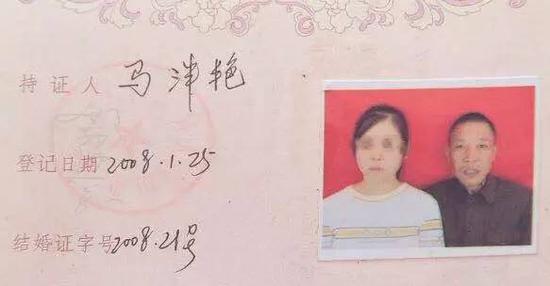 持证人 马泮艳
登记日期 2008.1.25
结婚证字号 2008.21号